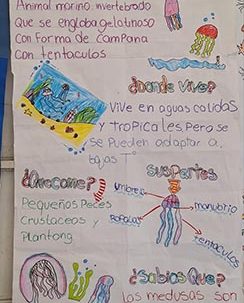 Animal marino invertebrado
Que se engloba gelatinoso
Con forma de campana
Con tentaculos
¿Donde Vive?
Vive en aguas calidas
y tropicales pero se
se Pueden adaptar a
bajas T°
¿Que come?
Pequeños Peces
Crustaceos y
Plantong
sus Partes
Umbrela
manubrio
Popular
tentaculos
¿Sabias Que?
las medusas son